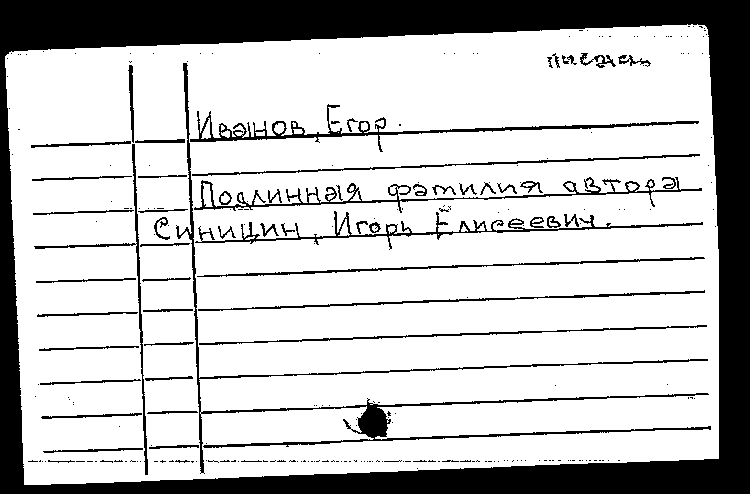 писатель
Иванов, Егор.
Подлинная фамилия автора
Синицин, Игорь Елисеевич.